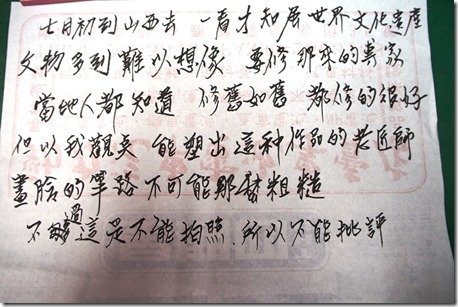 七月初到山西去 一看才知居世界文化遺產
文物多到難以想像 專修那來的專家
當地人都知道 修舊如舊 都修的很好
但以我觀点 能塑出這种作品的老匠師
畫臉的筆路 不可能那麼粗糙
不過這是不能拍照 所以不能批評